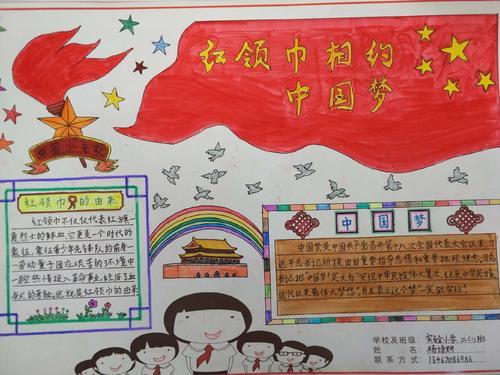 红领巾相约
中国梦
中国少先队
红领巾的由来
红领巾不仅仅代表红旗一
角烈士的鲜血,它更是一个时代的
象征,象征着少年先锋队的前身一
劳动童子团在艰苦的环境中
一腔热情投入革命事业,经历了血
与火的考验,这就是红领巾的由来
中国梦
中国梦是中国共产党召开第十八次全国代表大会以来,习
近平总书记所提出的重要指导思想和重要执政理念,习总
书记把"中国梦"定义为"实现中华民族伟大复兴,就是中华民族
近代以来最伟大梦想",而且表示这个"梦"一定能实现"。
学校及班级:实验小学 二(1)班
姓 名:杨
联系方式:13467086986